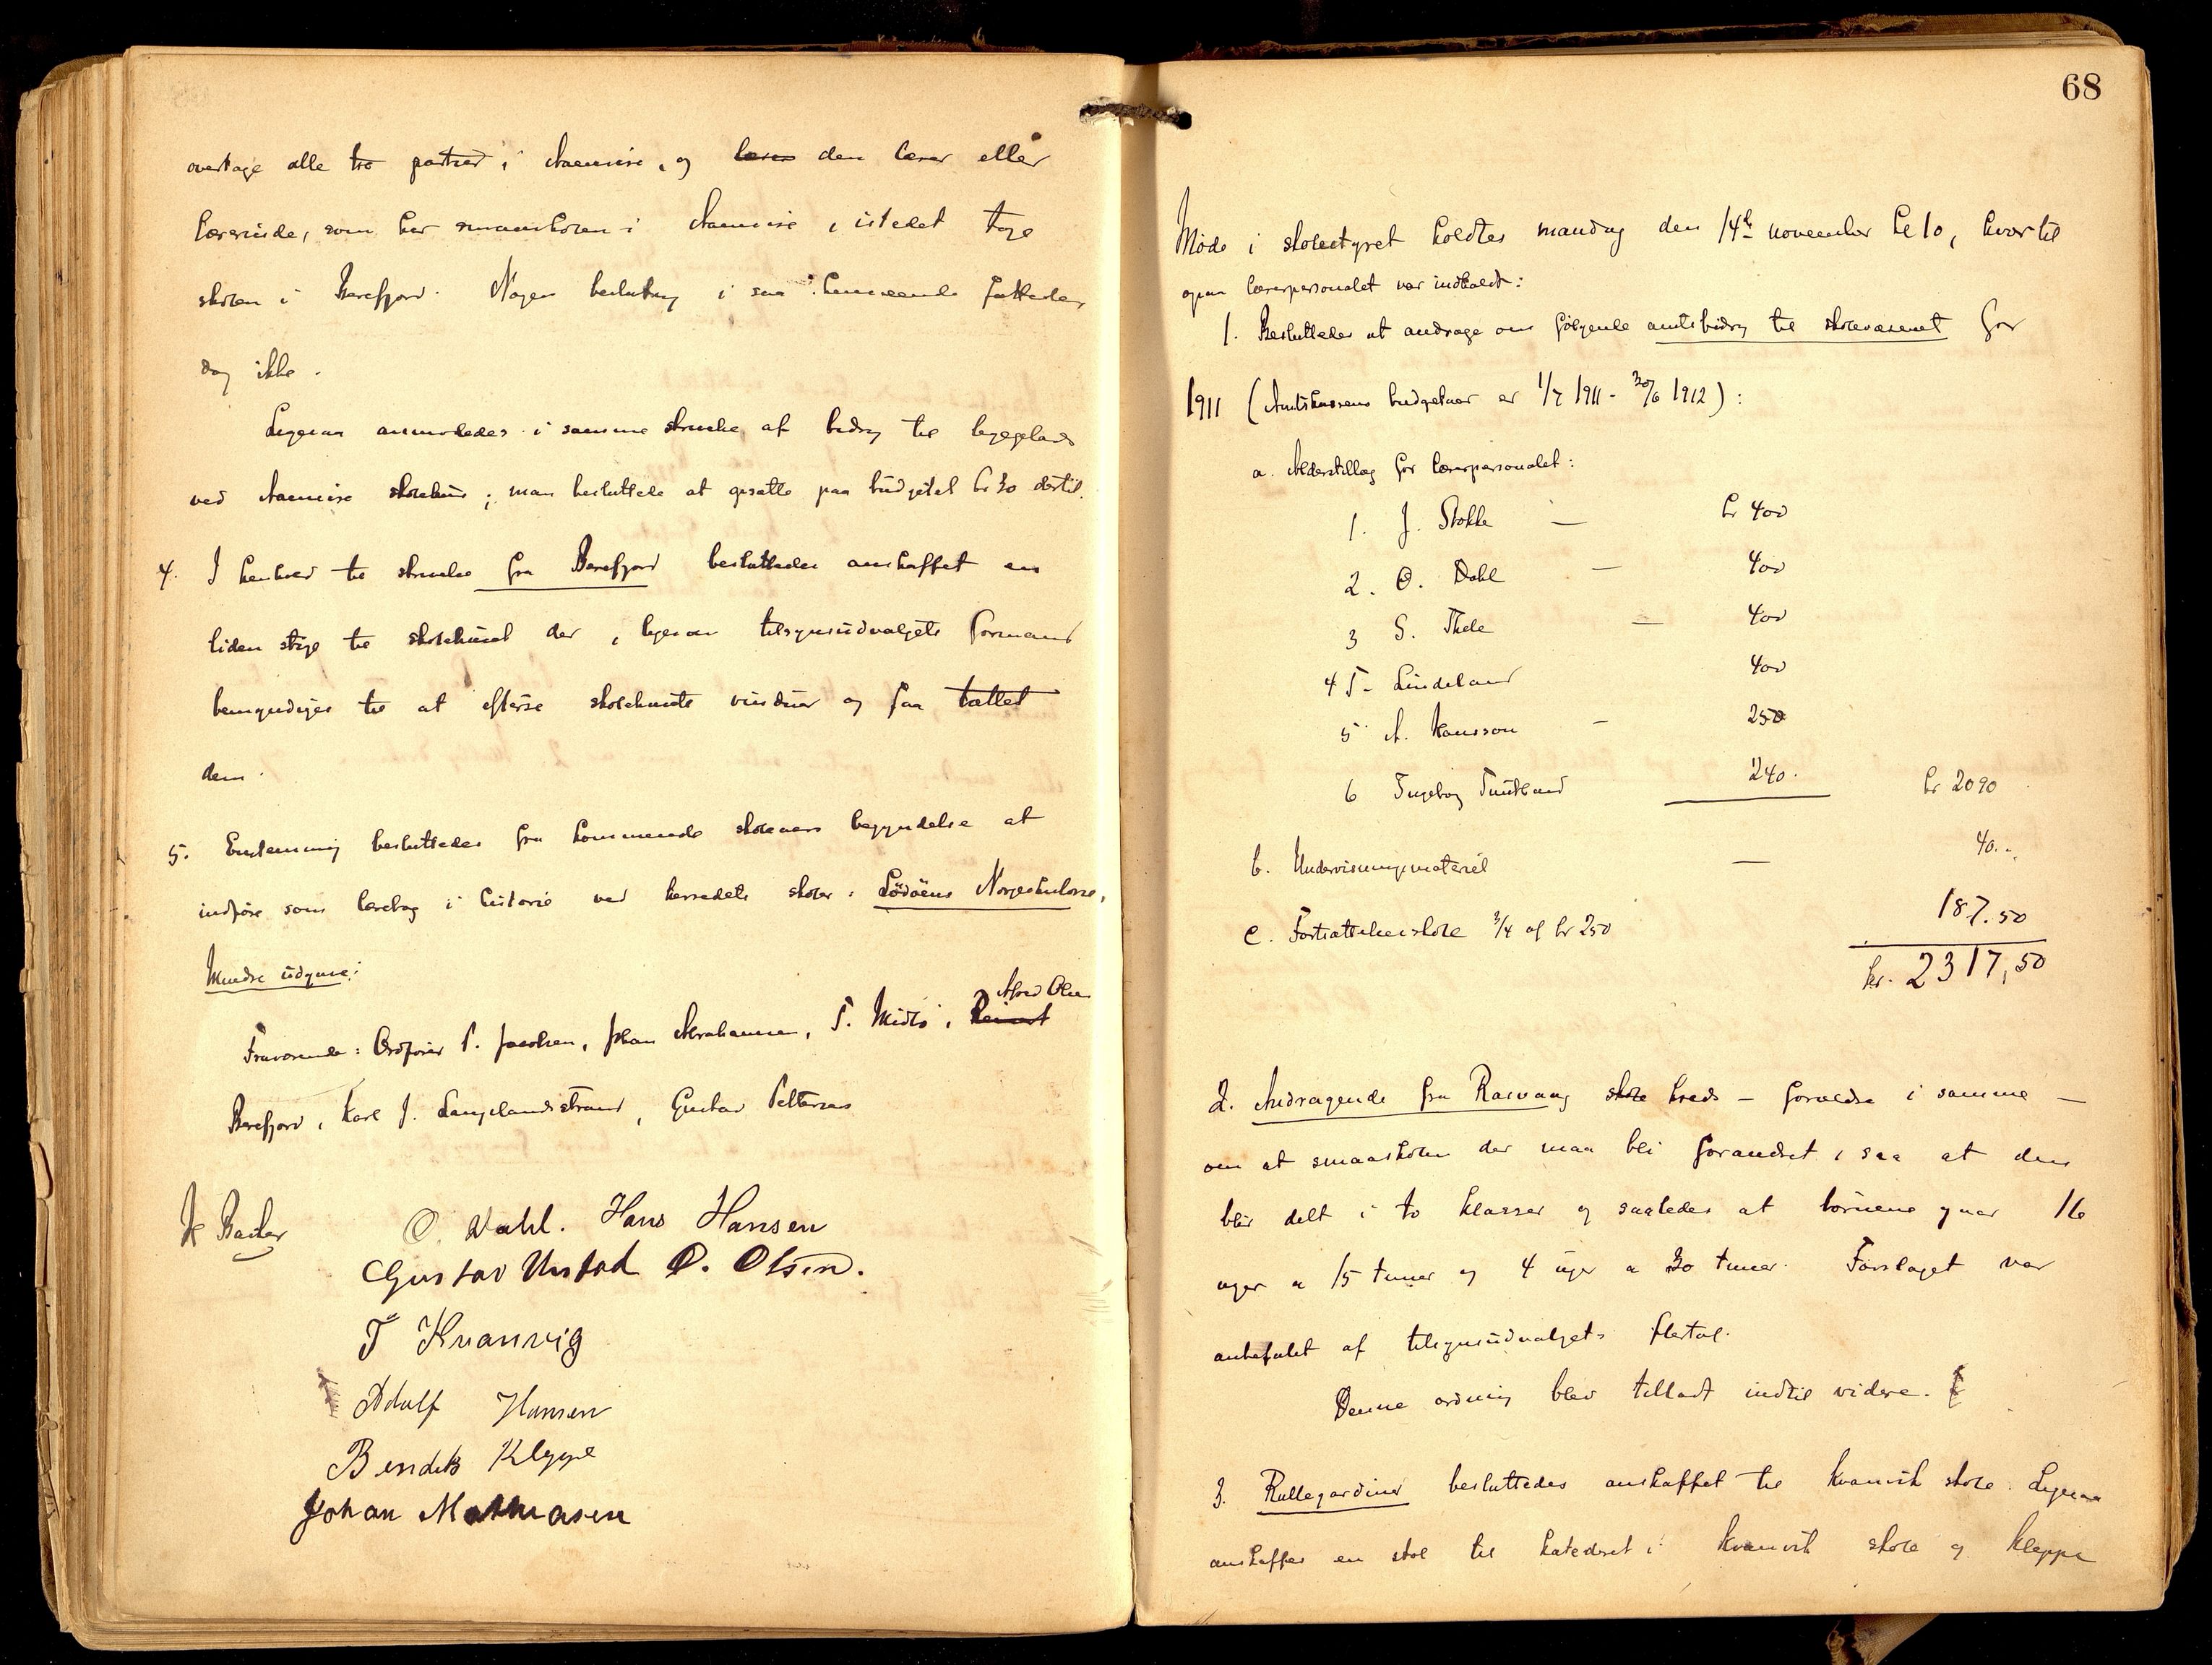 overtage alle tre partier i Aaeneire, og den lærer eller
lærerinde, som har smaaskolen i Aaeneire, istedet tage
skolen i Berefjord. Nogen beslutning i saa henseende fattedes
dog ikke.
Ligesaa anmodedes i samme skrivelse af bidrag til legeplads
ved skolehus; man besluttede at opsætte paa budgetet kr 30 dertil.
4. I henhold til skrivelse fra Berefjord besluttedes anskaffet en
liden stige til skolehuset der, ligesom tilsynsudvalgets formand
bemyndiges til at efterse skolehusets vinduer og faa tættet
dem.
5. Enstemmig besluttedes fra kommende skoleaars begyndelse at
indføre som lærebog i historie ved herredets skoler: Lødøens Norgeshistorie.
Mindre udgave.
Fraværende: Ordfører P. Jacobsen, Johan Abrahamsen, T. Midbø, Alfred Olsen
Berefjord, Karl J. Langelandsstrand, Gustav Pettersen
O. Dahl. Hans Hansen
Gustav Urstad O. Olsen.
T Kvanvig
Adolf Hansen
Bendik Kleppe
Johan Mathiasen
68
Møde i skolestyret holdtes mandag den 14de november kl 10, hvortil
ogsaa lærerpersonalet var indkaldt:
1. Besluttedes at andrage om følgende amtsbidrag til skolevæsenet for
1911 (Amtskassens budgetaar er 1/7 1911 - 30/6 1912):
a. Alderstillæg for lærerpersonalet:
1. J. Stokke — kr 400
2. O. Dahl — 400
3 S. Thele — 400
4 T. Lindeland 400
5 A. Hansson - 250
6 Ingeborg Tuntland 240. kr 2090
b. Undervisningsmateriel — 40.-
c. Fortsættelsesskole 3/4 af kr 250 187.50
kr. 2317,50
2. Andragende fra Rasvaag skole kreds — forældre i samme —
om at smaaskolen der maa bli forandret, saa at den
blir delt i to klasser og saaledes at børnene gaar 16
uger a 15 timer og 4 uger a 30 timer. Forslaget var
anbefalet af tilsynsudvalgets flertal.
Denne ordning blev tilladt indtil videre.
3. Rullegardiner besluttedes anskaffet til Kvanvik skole. Ligesaa
anskaffes en stol til katedret i Kvanvik skole og Kleppe